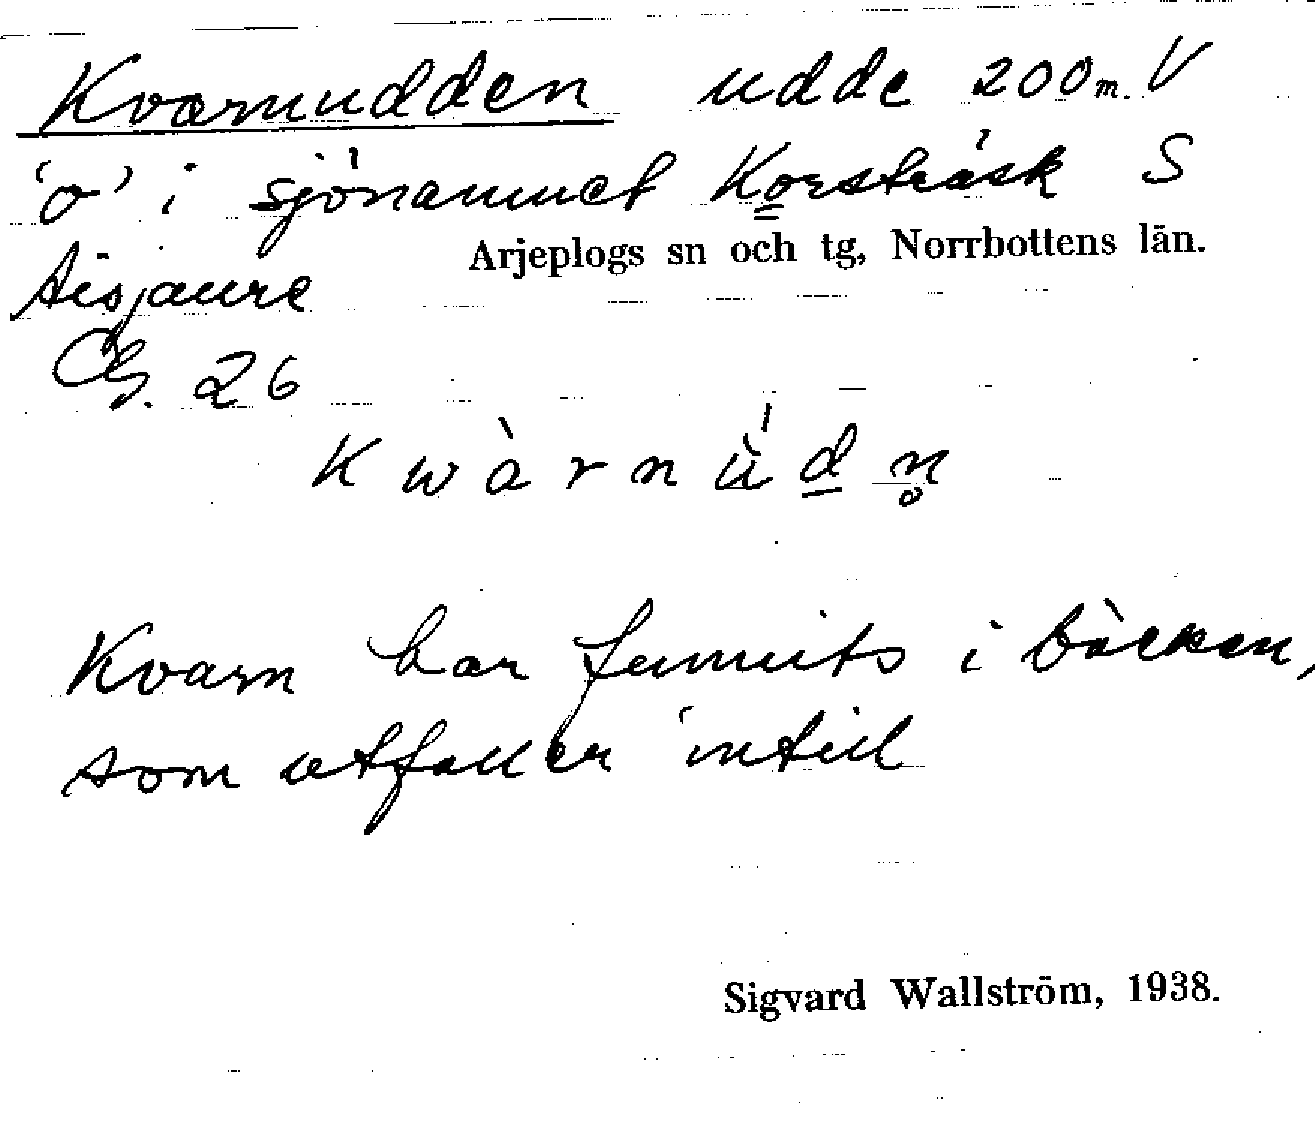 Kvarnudden udde 200 m. V
'o' i sjönamnet Korsträsk S
Arjeplogs sn och tg, Norrbottens län.
Aisjaure
Cg. 26
K w à r n ù d n̥
Kvarn har funnits i bäcken,
som utfaller intill
Sigvard Wallström, 1938.